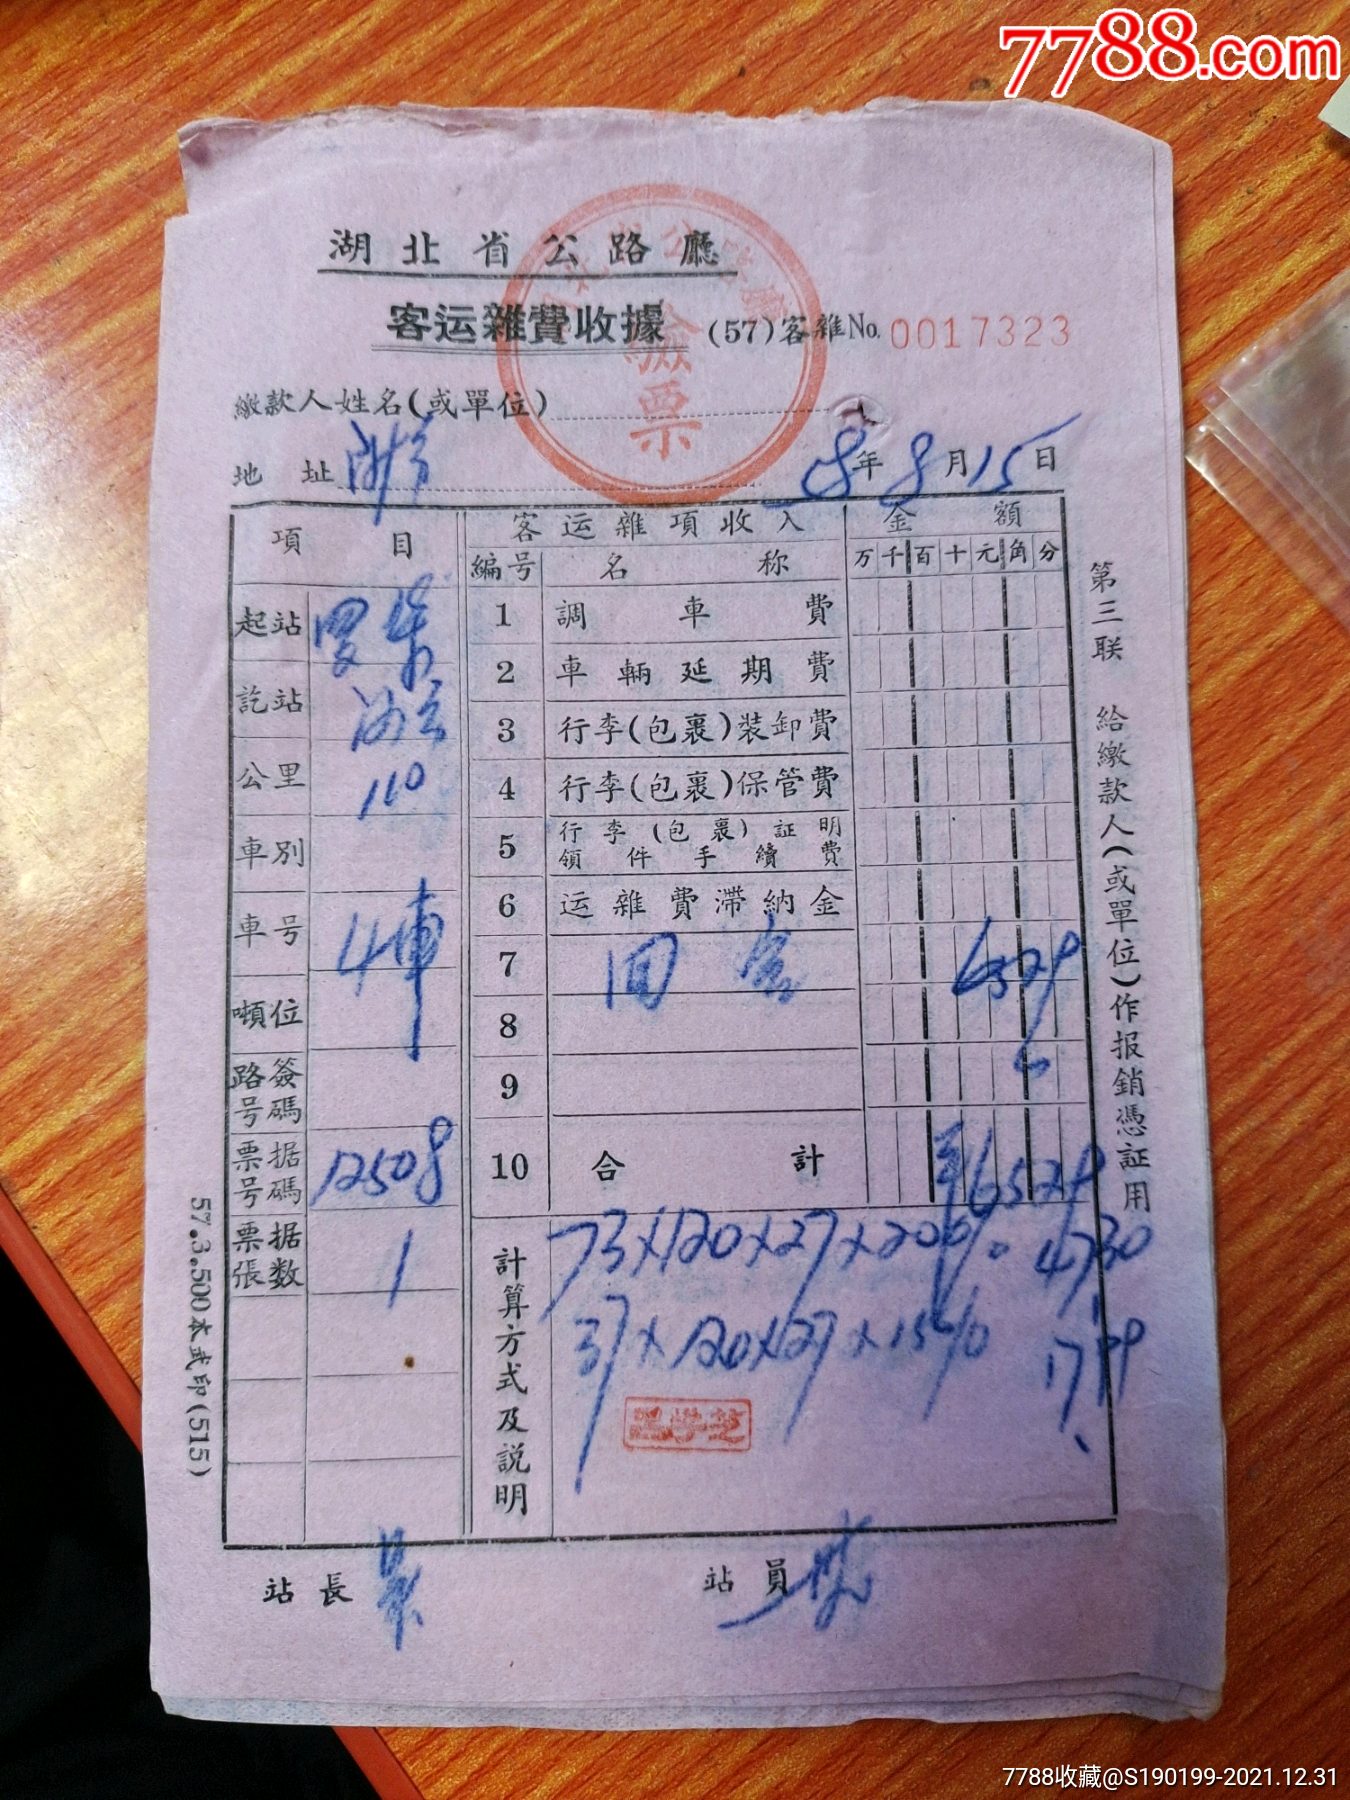 7788.com
湖北省公路廳
客运雜費收據 (57)客雜No. 0017323
驗票
繳款人姓名(或單位)
地址
58年8月15日
項目
客运雜項收入
金額
編号 名称 万千百十元角分
起站
1 調車費
訖站
2 車輛延期費
3 行李(包裹)装卸費
公里 110
4 行李(包裹)保管費
車別
5 行李(包裹)証明領件手續費
車号 4車
6 运雜費滯納金
7 回空 6529
噸位
8
路簽号碼
9
票据号碼 12508
10 合計 6529
票据張数 1
計算方式及説明
73×120×27×20% 47.30
37×120×27×15% 17.99
站長
站員
第三联 給繳款人(或單位)作报銷憑証用
57.3.500本武印(515)
7788收藏@S190199-2021.12.31